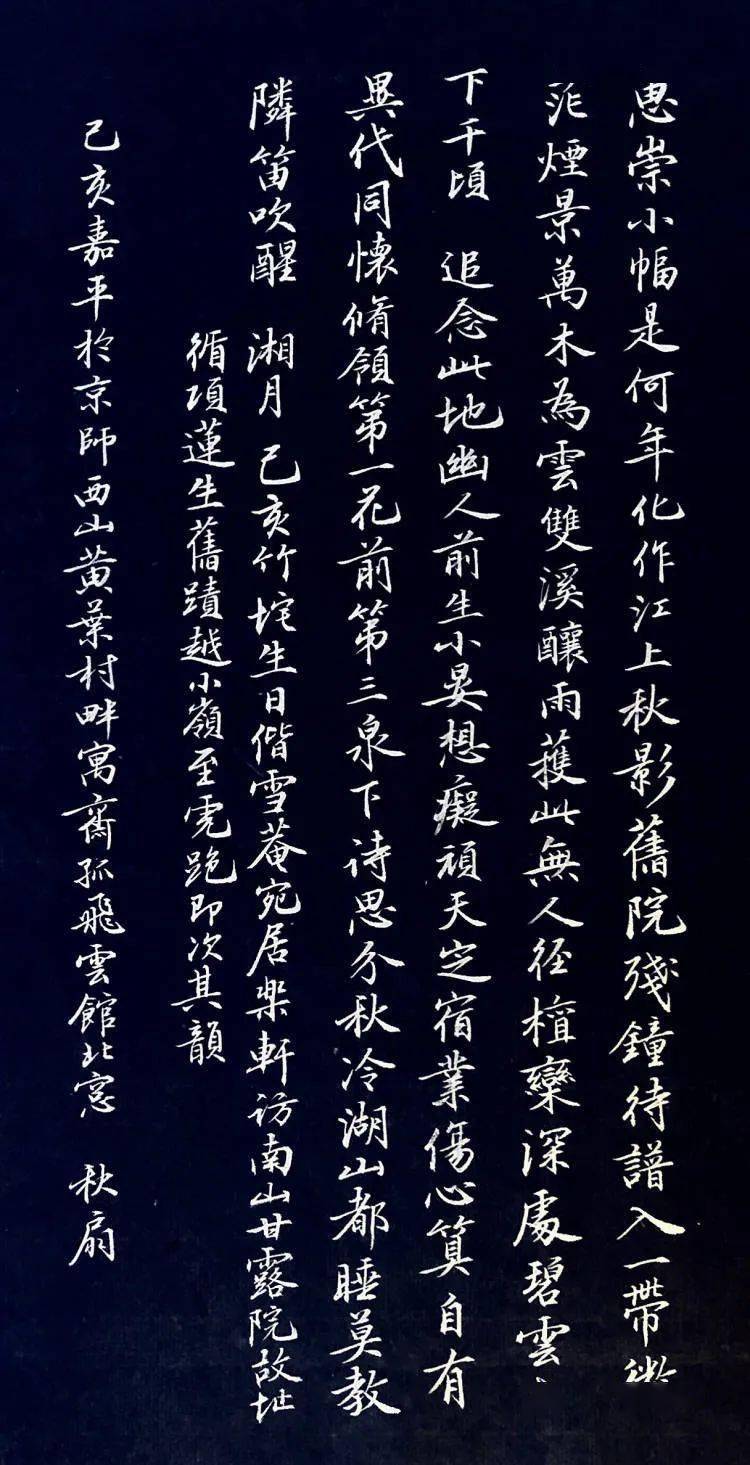 崇小幅是何年化作江上秋影舊院殘鐘待譜入一帶
煙景萬木為雲雙溪釀雨獲此無人徑檀欒深處碧雲
下千頃　追念此地幽人前生小晏想癡頑天定宿業傷心算自有
異代同懷脩領第一花前第三泉下詩思分秋冷湖山都睡莫教
隣笛吹醒　湘月　己亥竹垞生日偕雪菴宛居樂軒訪南山甘露院故址
循項蓮生舊蹟越小嶺至虎跑即次其韻
己亥嘉平於京師西山黄葉村畔寓齋孤飛雲館北窗　秋扇